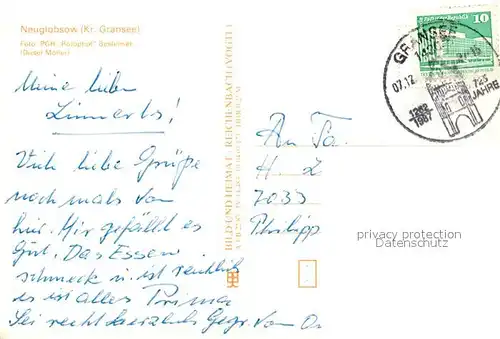 Neuglobsow (Kr. Gransee)
Foto: PGH
Meine lieben
Linnerts!
Viele liebe Grüße
noch mals von
hier. Mir gefällt es
Gut. Das Essen
schmeck u. ist reichlich
es ist alles Prima
Sei recht herzlichst Gegr. von O
BILD UND HEIMAT REICHENBACH
An Fa.
H Z
7033
GRANSEE
07.12.
1262
1987
725
JAHRE
10
privacy protection
Datenschutz